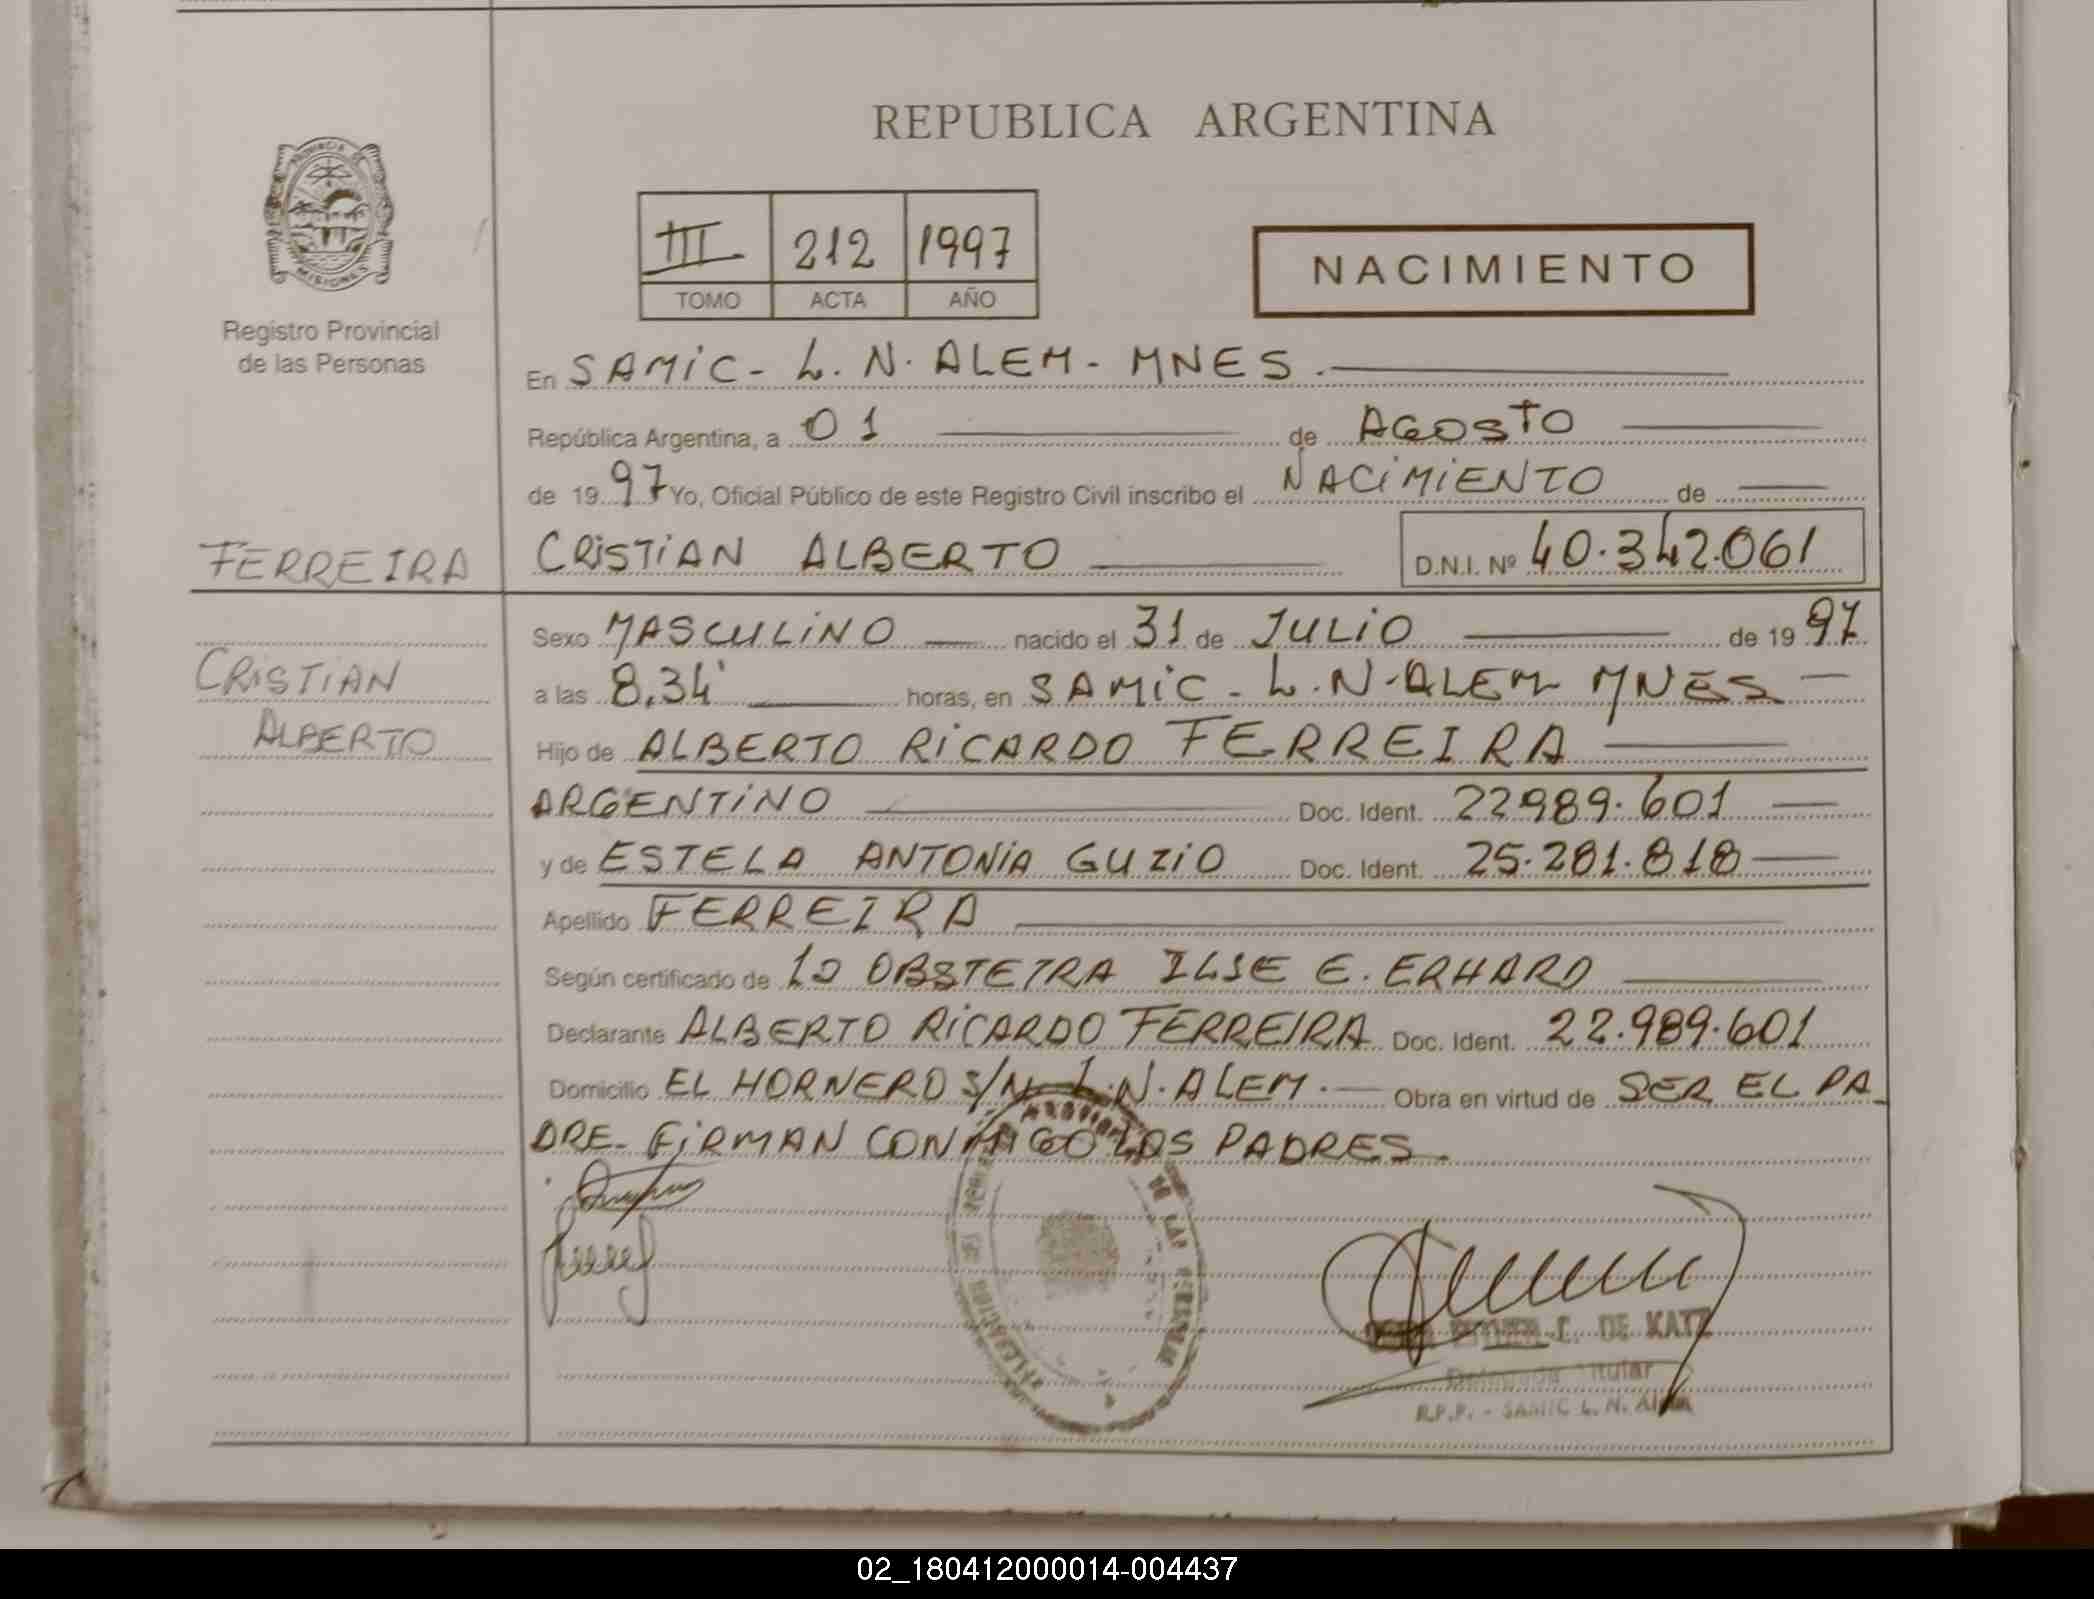 REPUBLICA ARGENTINA
PROVINCIA DE
MISIONES
Registro Provincial
de las Personas
III 212 1997
TOMO ACTA AÑO
NACIMIENTO
En SAMIC - L. N. ALEM - MNES.
República Argentina, a 01 de AGOSTO
de 1997 Yo, Oficial Público de este Registro Civil inscribo el NACIMIENTO de
FERREIRA
CRISTIAN ALBERTO D.N.I. Nº 40.342.061
Sexo MASCULINO nacido el 31 de JULIO de 1997
CRISTIAN
a las 8,34' horas, en SAMIC - L. N. ALEM MNES
ALBERTO
Hijo de ALBERTO RICARDO FERREIRA
ARGENTINO Doc. Ident. 22989.601
y de ESTELA ANTONIA GUZIO Doc. Ident. 25.281.818
Apellido FERREIRA
Según certificado de LA OBSTETRA ILSE E. ERHARD
Declarante ALBERTO RICARDO FERREIRA Doc. Ident. 22.989.601
Domicilio EL HORNERO S/N L. N. ALEM. Obra en virtud de SER EL PA_
DRE. FIRMAN CONMIGO LOS PADRES.
DE LAS
C. DE KATZ
Titular
R.P.P. - SAMIC L. N. Alem
02_180412000014-004437